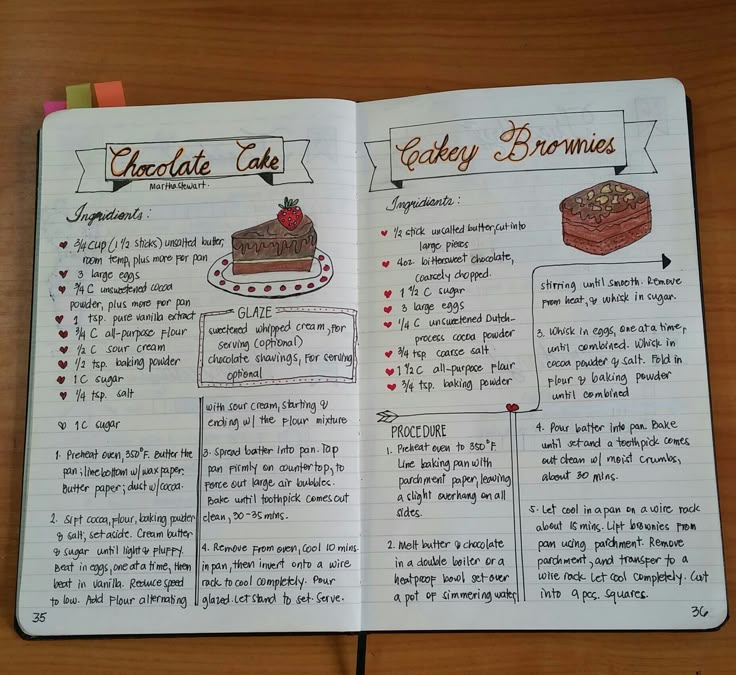 Chocolate Cake
Martha Stewart.
Ingridients:
3/4 cup (1 1/2 sticks) unsalted butter,
room temp, plus more for pan
3 large eggs
3/4 C unsweetened cocoa
powder, plus more for pan
1 tsp. pure vanilla extract
3/4 C all-purpose flour
1/2 C sour cream
1/2 tsp. baking powder
1 C sugar
1/4 tsp. salt
1C sugar
GLAZE
sweetened whipped cream, for
serving (optional)
chocolate shavings, for serving
optional
1. Preheat oven, 350°F. Butter the
pan; line bottom w/ wax paper;
Butter paper; dust w/cocoa.
2. Sift cocoa, flour, baking powder
& salt; set aside. Cream butter
& sugar until light & fluffy.
Beat in eggs, one at a time, then
beat in vanilla. Reduce speed
to low. Add flour alternating
with sour cream, starting &
ending w/ the flour mixture
3. Spread batter into pan. Tap
pan firmly on countertop, to
force out large air bubbles.
Bake until toothpick comes out
clean, 30-35 mins.
4. Remove from oven, cool 10 mins.
in pan, then invert onto a wire
rack to cool completely. Pour
glazed. Let stand to set. Serve.
35
Cakey Brownies
Ingridients:
1/2 stick unsalted butter, cut into
large pieces
4oz bittersweet chocolate,
coarsely chopped.
1 1/2 C sugar
3 large eggs
1/4 C unsweetened Dutch-
process cocoa powder
3/4 tsp coarse salt
1 1/2 C all-purpose flour
3/4 tsp. baking powder
PROCEDURE
1. Preheat oven to 350°F.
Line baking pan with
parchment paper, leaving
a slight overhang on all
sides.
2. Melt butter & chocolate
in a double boiler or a
heatproof bowl set over
a pot of simmering water,
stirring until smooth. Remove
from heat, & whisk in sugar.
3. Whisk in eggs, one at a time,
until combined. Whisk in
cocoa powder & salt. Fold in
flour & baking powder
until combined
4. Pour batter into pan. Bake
until set and a toothpick comes
out clean w/ moist crumbs,
about 30 mins.
5. Let cool in a pan on a wire rock
about 15 mins. Lift brownies from
pan using parchment. Remove
parchment, and transfer to a
wire rack let cool completely. Cut
into 9 pcs. squares.
36